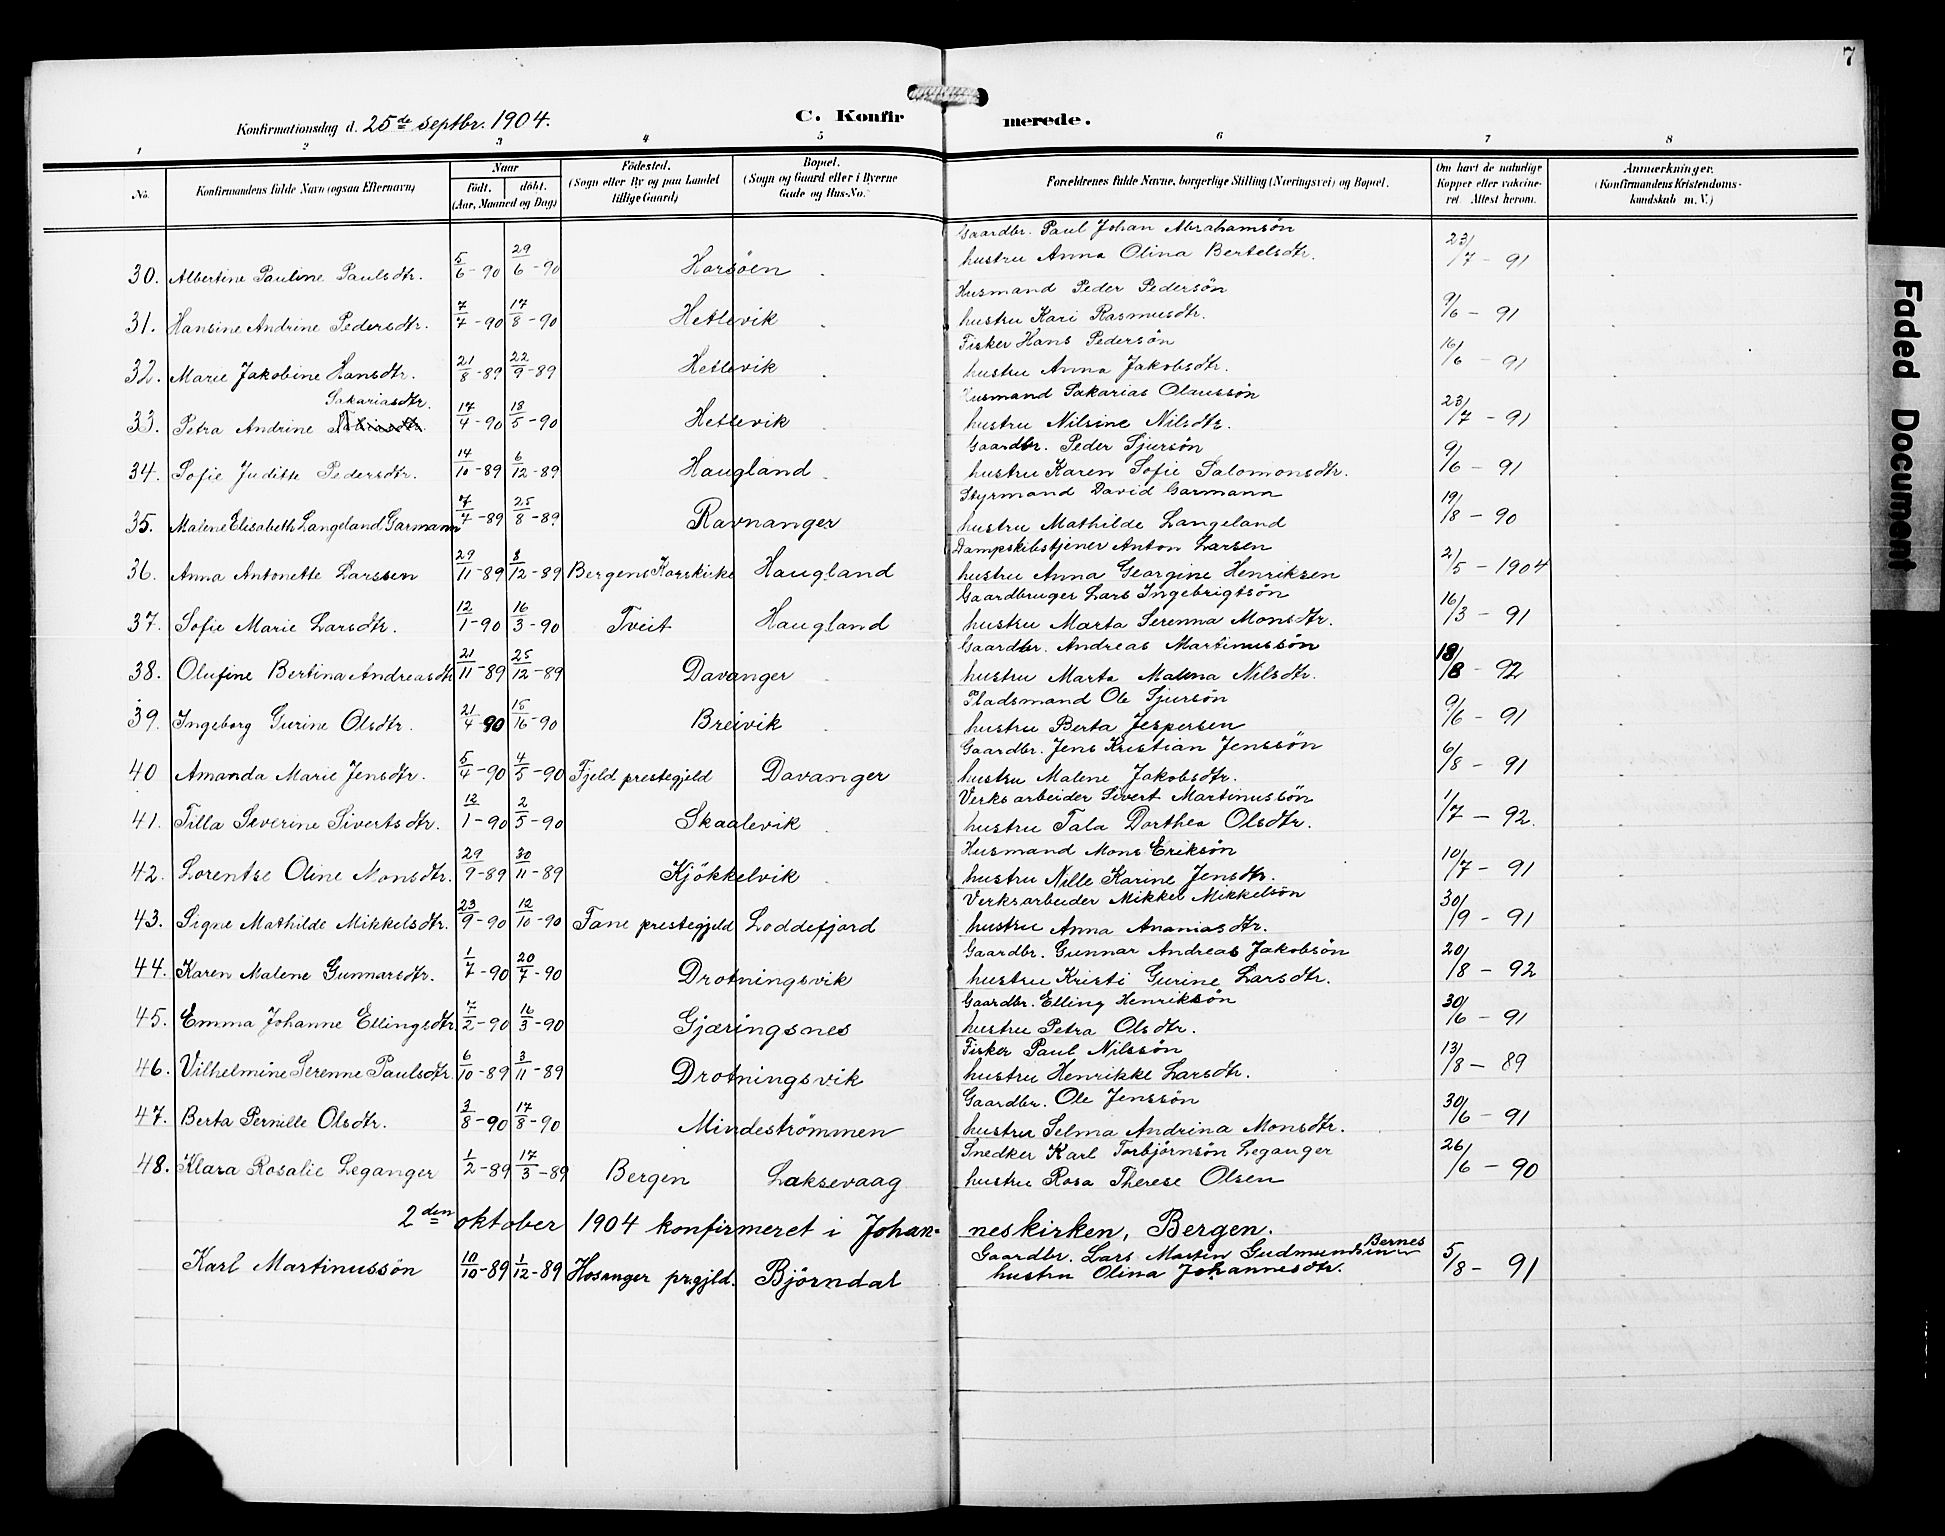 7
Konfirmationsdag d. 25de septbr. 1904.
C. Konfirmerede.
1 2 3 4 5 6 7 8
No. Konfirmandens fulde Navn (ogsaa Efternavn) Naar Födt. döbt. (Aar, Maaned og Dag) Födested. (Sogn eller By og paa Landet tillige Gaard) Bopæl. (Sogn og Gaard eller i Byerne Gade og Hus-No. Forældrenes fulde Navne, borgerlige Stilling (Næringsvei) og Bopæl. Om havt de naturlige Kopper eller vakcineret. Attest herom. Anmærkninger. (Konfirmandens Kristendomskundskab m. V.)
Gaardbr. Paul Johan Abrahamsön
30. Albertine Pauline Paulsdtr. 5/6-90 29/6-90 Horsöen hustru Anna Olina Bertelsdtr. 23/7-91
Husmand Peder Pedersön
31. Hansine Andrine Pedersdtr. 7/7-90 17/8-90 Hetlevik hustru Kari Rasmusdtr. 9/6-91
Fisker Hans Pedersön
32. Marie Jakobine Hansdtr. 21/8-89 22/9-89 Hetlevik hustru Anna Jakobsdtr. 16/6-91
Sakariasdtr. Husmand Sakarias Olaussön
33. Petra Andrine 17/4-90 18/5-90 Hetlevik hustru Nilsine Nilsdtr. 23/7-91
Gaardbr. Peder Sjursön
34. Sofie Juditte Pedersdtr. 14/10-89 6/12-89 Haugland hustru Karen Sofie Salomonsdtr. 9/6-91
Styrmand David Garmann
35. Malene Elisabeth Langeland Garmann 7/7-89 25/8-89 Ravnanger hustru Mathilde Langeland 19/8-90
Dampskibstjener Anton Larsen
36. Anna Antonette Larssen 29/11-89 8/12-89 Bergens Korskirke Haugland hustru Anna Georgine Henriksen 2/5-1904
Gaardbruger Lars Ingebrigtsön
37. Sofie Marie Larsdtr. 12/1-90 16/3-90 Tveit Haugland hustru Marta Serenna Monsdtr. 16/3-91
Gaardbr. Andreas Martinussön
38. Olufine Bertina Andreasdtr 21/11-89 25/12-89 Davanger hustru Marta Malena Nilsdtr. 18/8-92
Pladsmand Ole Sjursön
39. Ingeborg Gurine Olsdtr. 21/4 90 15/16-90 Breivik hustru Berta Jespersen 9/6-91
Gaardbr. Jens Kristian Jenssön
40 Amanda Marie Jensdtr. 5/4-90 4/5-90 Fjeld prestegjeld Davanger hustru Malene Jakobsdtr. 6/8-91
Verksarbeider Sivert Martinussön
41. Tilla Severine Sivertsdtr. 12/1-90 2/5-90 Skaalevik hustru Tala Dorthea Olsdtr. 1/7-92.
Husmand Mons Eriksön
42. Lorentse Oline Monsdtr. 29/9-89 30/11-89 Kjökkelvik hustru Nille Karine Jensdtr. 10/7-91
Verksarbeider Mikkel Mikkelsön
43. Signe Mathilde Mikkelsdtr. 23/9-90 12/10-90 Fane prestegjeld Loddefjord hustru Anna Ananiasdtr. 30/9-91
Gaardbr. Gunnar Andreas Jakobsön
44. Karen Malene Gunnarsdtr. 1/7-90 20/7-90 Drotningsvik hustru Kristi Gurine Larsdtr. 20/8-92
Gaardbr. Elling Henriksön
45. Emma Johanne Ellingsdtr 7/2-90 16/3-90 Gjæringsnes hustru Petra Olsdtr. 30/6-91
Fisker Paul Nilssön
46. Vilhelmine Serenne Paulsdtr. 6/10-89 3/11-89 Drotningsvik hustru Henrikke Larsdtr. 13/8-89
Gaardbr. Ole Jenssön
47. Berta Pernille Olsdtr. 3/8-90 17/8-90 Mindeströmmen hustru Selma Andrina Monsdtr. 30/6-91
Snedker Karl Torbjörnsön Leganger
48. Klara Rosalie Leganger 1/2-89 17/3-89 Bergen Laksevaag hustru Rosa Therese Olsen 26/6-90
2den oktober 1904 konfirmeret i Johanneskirken, Bergen.
Gaardbr. Lars Martin Gudmundsen Bernes
Karl Martinussön 10/10-89 1/12-89 Hosanger prgjld. Björndal hustru Olina Johannesdtr. 5/8-91
Faded Document